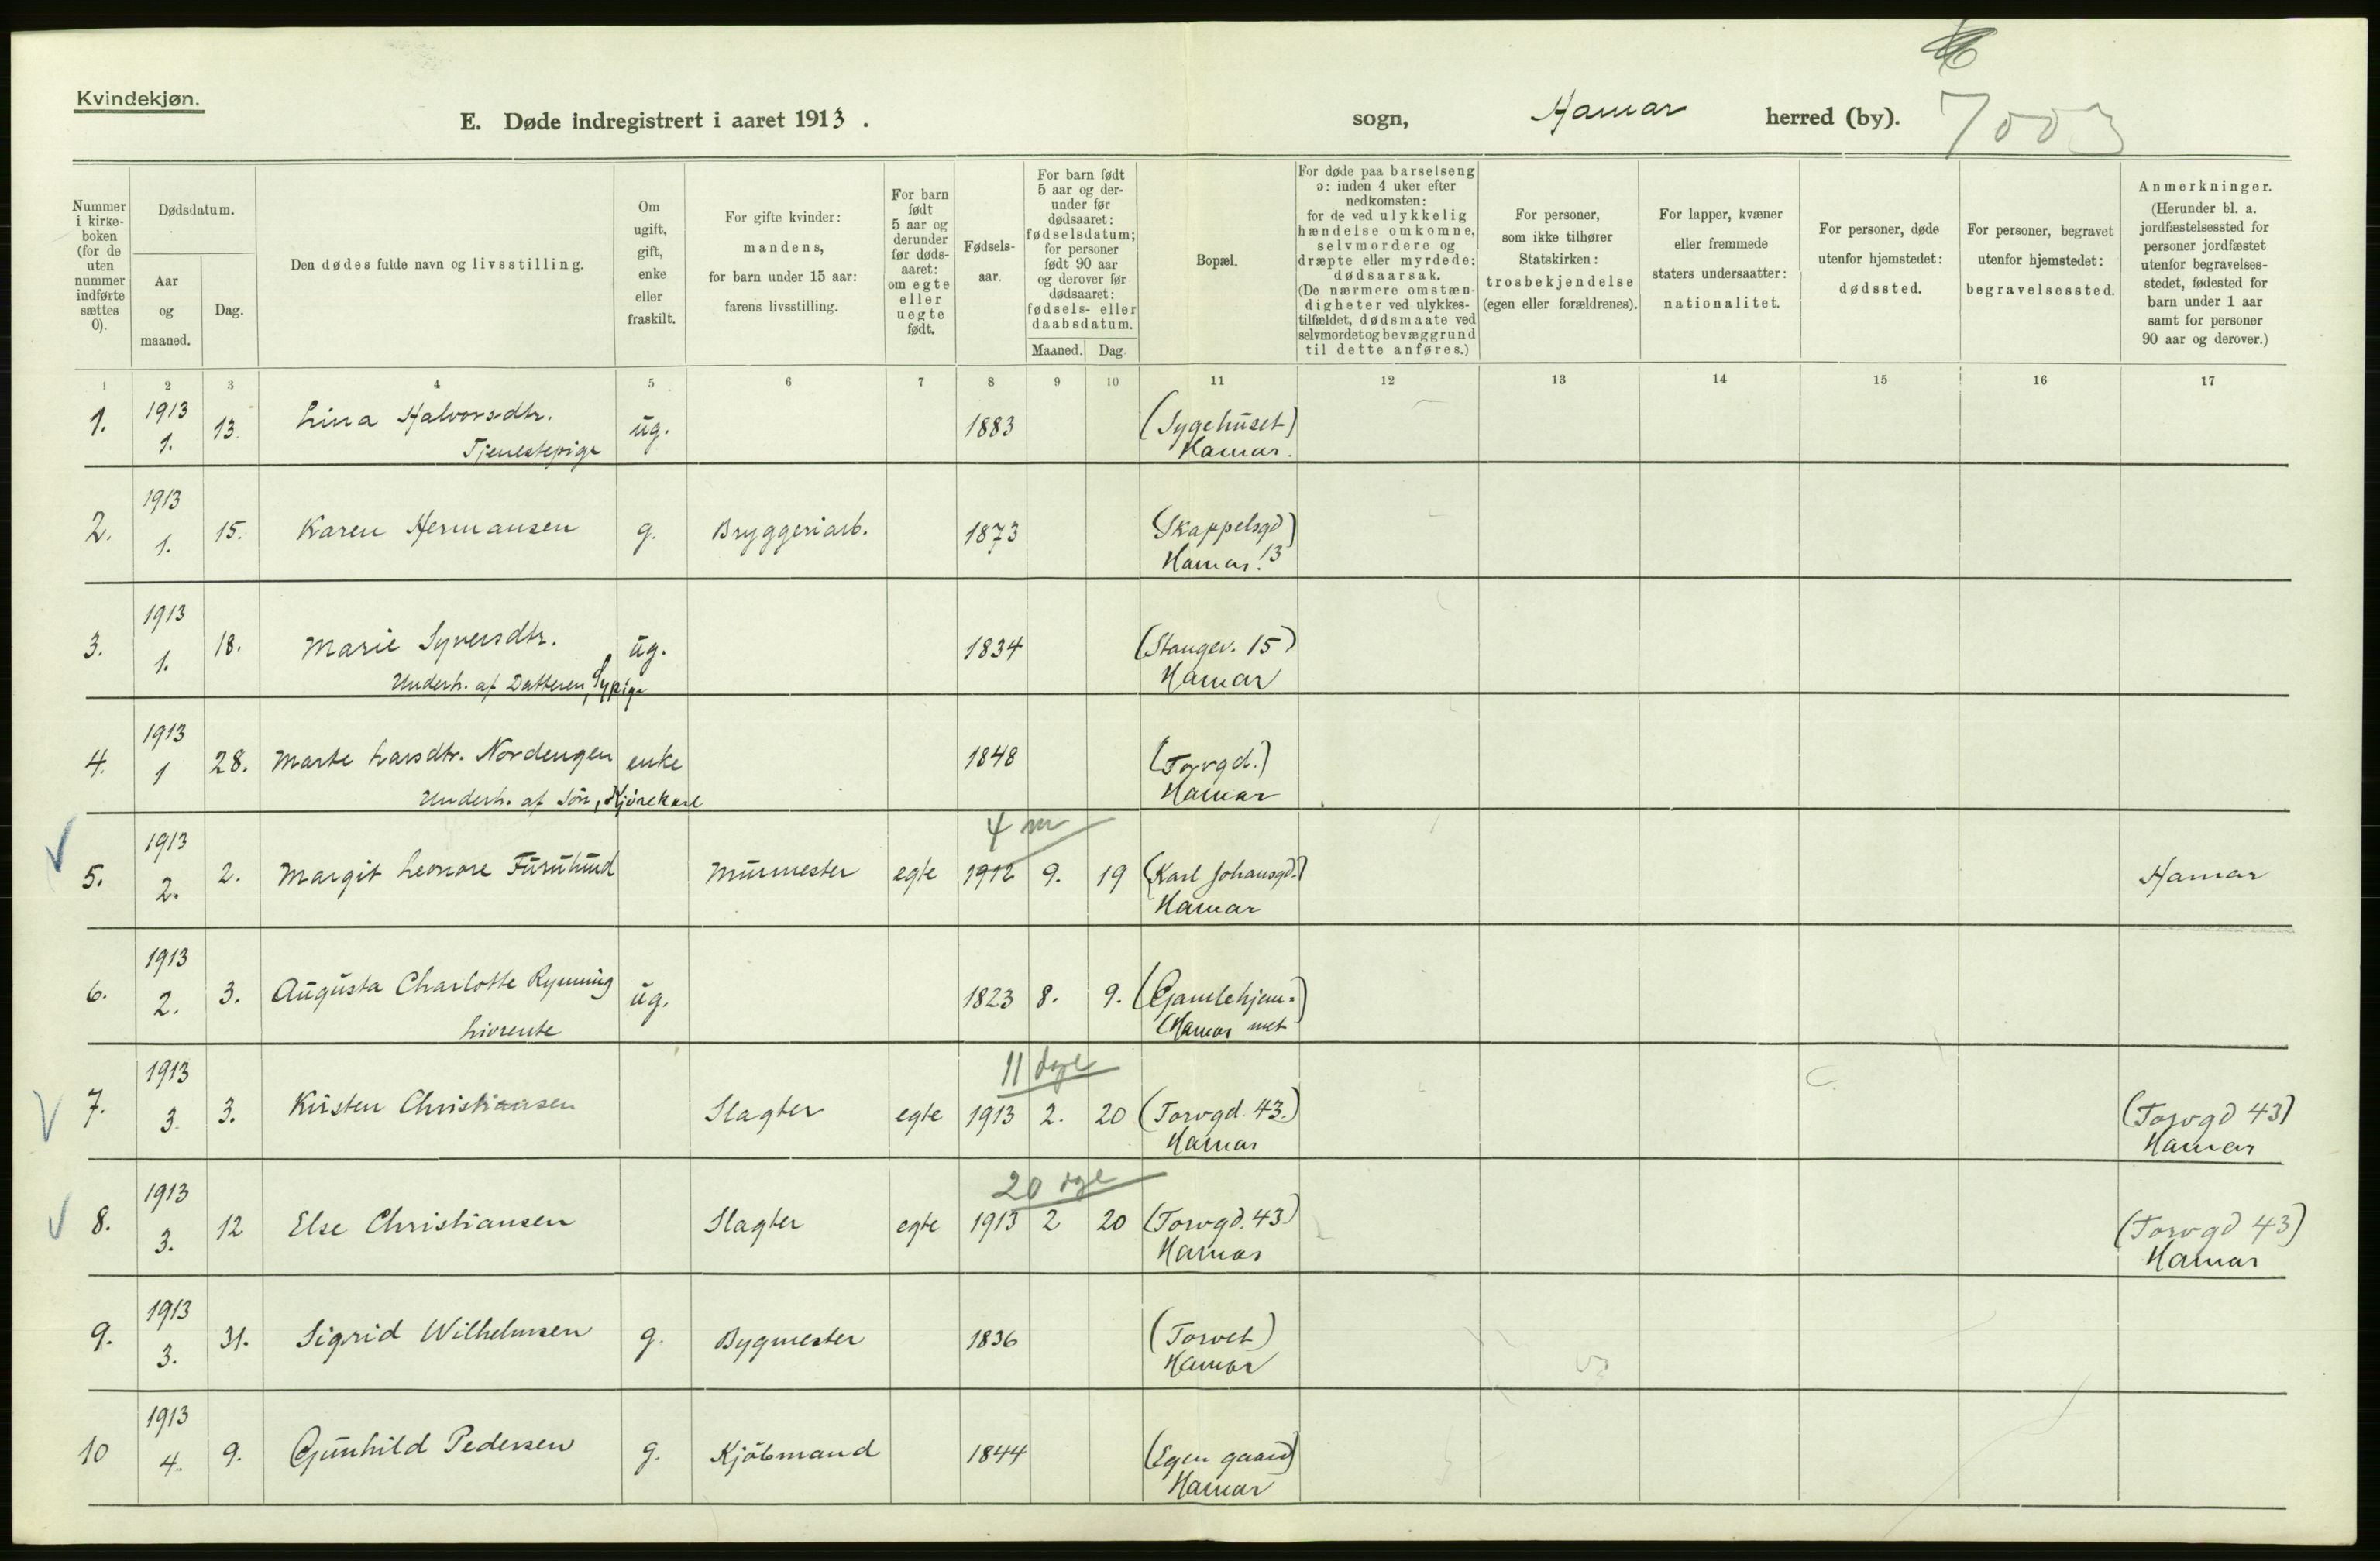 Kvindekjøn.
E. Døde indregistrert i aaret 1913 .
sogn, Hamar herred (by). 7003
Nummer i kirke- boken (for de uten nummer indførte sættes 0).
Dødsdatum.
Aar og maaned.
Dag.
Den dødes fulde navn og livsstilling.
Om ugift, gift, enke eller fraskilt.
For gifte kvinder: mandens, for barn under 15 aar: farens livsstilling.
For barn født 5 aar og derunder før døds- aaret: om egte eller uegte født.
Fødsels- aar.
For barn født 5 aar og der- under før dødsaaret: fødselsdatum; for personer født 90 aar og derover før dødsaaret: fødsels- eller daabsdatum.
Maaned. Dag.
Bopæl.
For døde paa barselseng ɔ: inden 4 uker efter nedkomsten: for de ved ulykkelig hændelse omkomne, selvmordere og dræpte eller myrdede: dødsaarsak. (De nærmere omstæn- digheter ved ulykkes- tilfældet, dødsmaate ved selvmordet og bevæggrund til dette anføres.)
For personer, som ikke tilhører Statskirken: trosbekjendelse (egen eller forældrenes).
For lapper, kvæner eller fremmede staters undersaatter: nationalitet.
For personer, døde utenfor hjemstedet: dødssted.
For personer, begravet utenfor hjemstedet: begravelsessted.
Anmerkninger. (Herunder bl. a. jordfæstelsessted for personer jordfæstet utenfor begravelses- stedet, fødested for barn under 1 aar samt for personer 90 aar og derover.)
1 2 3 4 5 6 7 8 9 10 11 12 13 14 15 16 17
1. 1913 1. 13. Lina Halvorsdtr. ug. 1883 (Sygehuset)
Tjenestepige Hamar.
2. 1913 1. 15. Karen Hermansen g. Bryggeriarb. 1873 (Skappelsgd)
Hamar. 13
3. 1913 1. 18. Marie Syversdtr. ug. 1834 (Stangev. 15)
Underh. af Datteren, Sypige Hamar
4. 1913 1 28. Marte Larsdtr. Nordengen enke 1848 (Torvgd.)
Underh. af Søn, Kjørekarl Hamar
4 m
5. 1913 2. 2. Margit Leonore Furulund Murmester egte 1912 9. 19 (Karl Johansgd.) Hamar
Hamar
6. 1913 2. 3. Augusta Charlotte Rynning ug. 1823 8. 9. (Gamlehjem=)
Livrente (Hamar met
11 dage
7. 1913 3. 3. Kirsten Christiansen Slagter egte 1913 2. 20 (Torvgd. 43.) (Torvgd 43)
Hamar Hamar
20 dge
8. 1913 3. 12 Else Christiansen Slagter egte 1913 2 20 (Torvgd. 43) (Torvgd 43)
Hamar Hamar
9. 1913 3. 31. Sigrid Wilhelmsen g. Bygmester 1836 (Torvet)
Hamar
10 1913 4. 9. Gunhild Pedersen g. Kjøbmand 1844 (Egen gaard)
Hamar